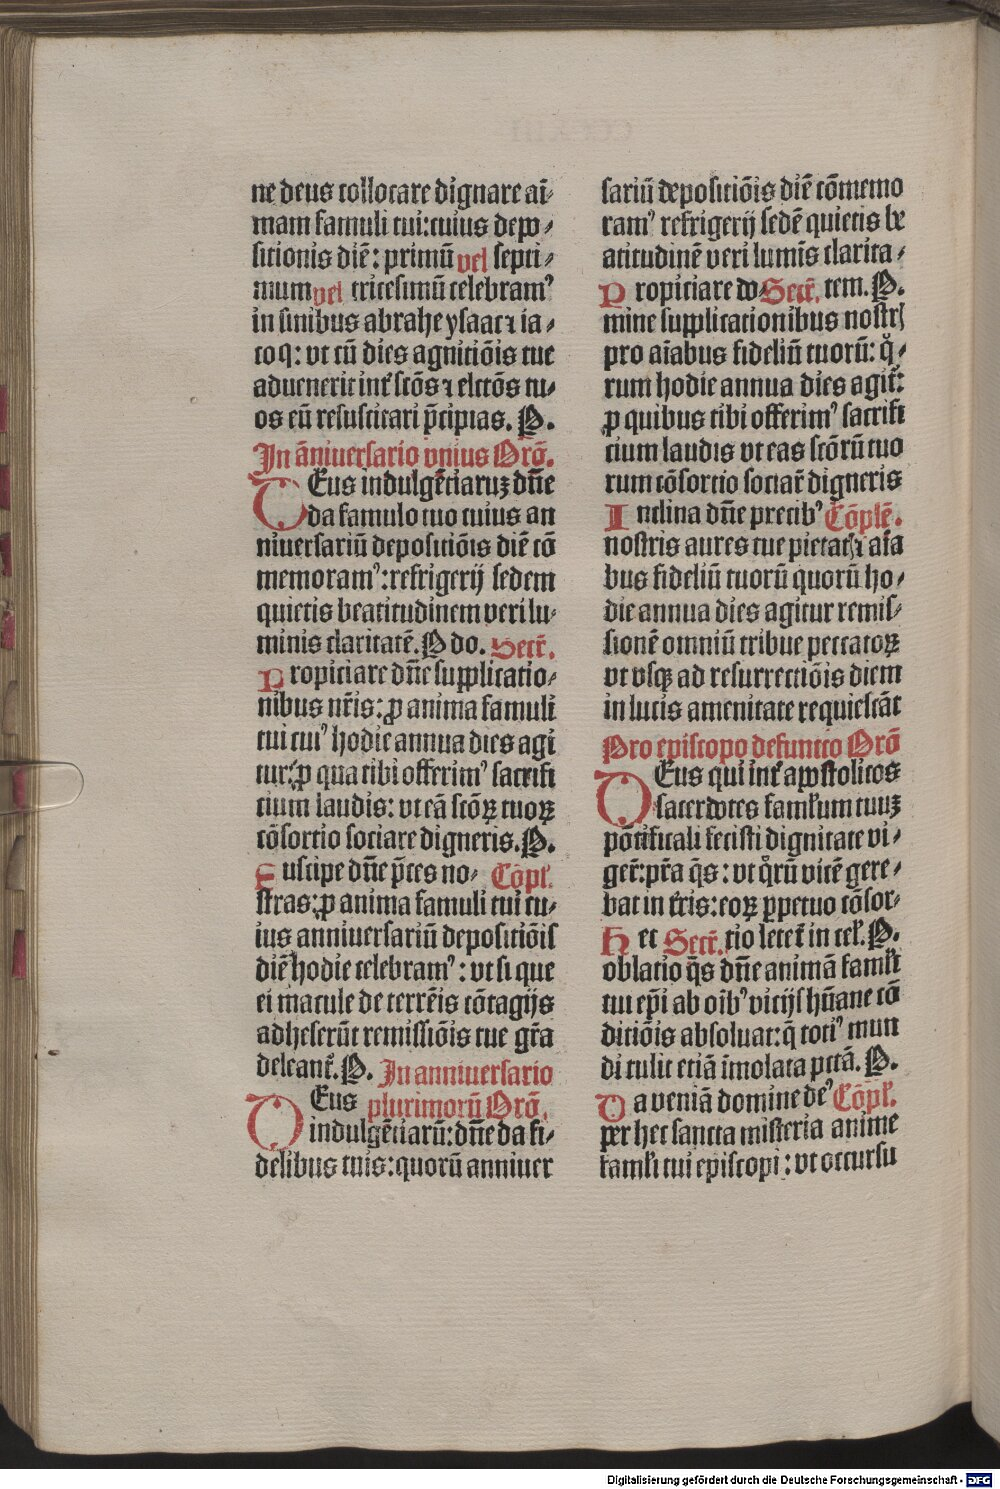 ne deus collocare dignare aī⸗
mam famuli tui:cuius depo⸗
sitionis diē: primū vel septi⸗
mum vel tricesimū celebramꝰ
in sinibus abrahe ysaac ⁊ ia⸗
coq: vt cū dies agnitiōis tue
aduenerit int̄ scōs ⁊ elctōs tu⸗
os eū resuscitari p̄cipias. P.
In āniuersario vnius Orō.
DEus indulgētiaruꝫ dn̄e
da famulo tuo cuius an
niuersariū depositiōis diē cō
memoramꝰ:refrigerij sedem
quietis beatitudinem veri lu⸗
minis claritatē. P do. Secr̄.
Propiciare dn̄e supplicatio⸗
nibus nr̄is: ꝓ anima famuli
tui cuiꝰ hodie annua dies agi
tur: ꝓ qua tibi offerimꝰ sacrifi
cium laudis: vt eā scōꝝ tuoꝝ
cōsortio sociare digneris. P.
Suscipe dn̄e p̄ces no⸗ Cōpl̄.
stras: ꝓ anima famuli tui cu⸗
ius anniuersariū depositiōis
diē hodie celebramꝰ: vt si que
ei macule de terrēis cōtagijs
adheserūt remissiōis tue gr̄a
deleant̄. P. In anniuersario
DEus plurimorū Orō.
indulgētiarū: dn̄e da fi⸗
delibus tuis: quorū anniuer
sariū depositiōis diē cōmemo
ramꝰ refrigerij sedē quietis be
atitudinē veri lumīs clarita⸗
Propiciare do⸗ Secr̄. tem. P.
mine supplicationibus nostrꝭ
pro aīabus fideliū tuorū: q̊⸗
rum hodie annua dies agit̄:
ꝓ quibus tibi offerimꝰ sacrifi
cium laudis vt eas scōrū tuo
rum cōsortio sociar̄ digneris
Inclina dn̄e precibꝰ Cōplē.
nostris aures tue pietatꝭ ⁊ aīa
bus fideliū tuorū quorū ho⸗
die annua dies agitur remis⸗
sionē omniū tribue peccatoꝝ
vt vsqꝫ ad resurrectiōis diem
in lucis amenitate requiescāt
Pro episcopo defuncto Orō
DEus qui int̄ apostolicos
sacerdotes famłum tuuꝫ
pōtificali fecisti dignitate vi⸗
ger̄: pr̄a q̄s: vt q̊rū vicē gere⸗
bat in tr̄is: eoꝝ ꝑpetuo cōsor⸗
Hec Secr̄. tio letet̄ in cel̄. P.
oblatio q̄s dn̄e animā famłi
tui ep̄i ab oībꝰ vitijs hūane cō
ditiōis absoluat: q̄ totiꝰ mun
di tulit etiā īmolata pctā. P.
Da veniā domine deꝰ Cōpl̄.
per hec sancta misteria anime
famłi tui episcopi: vt occursu
Digitalisierung gefördert durch die Deutsche Forschungsgemeinschaft - DFG